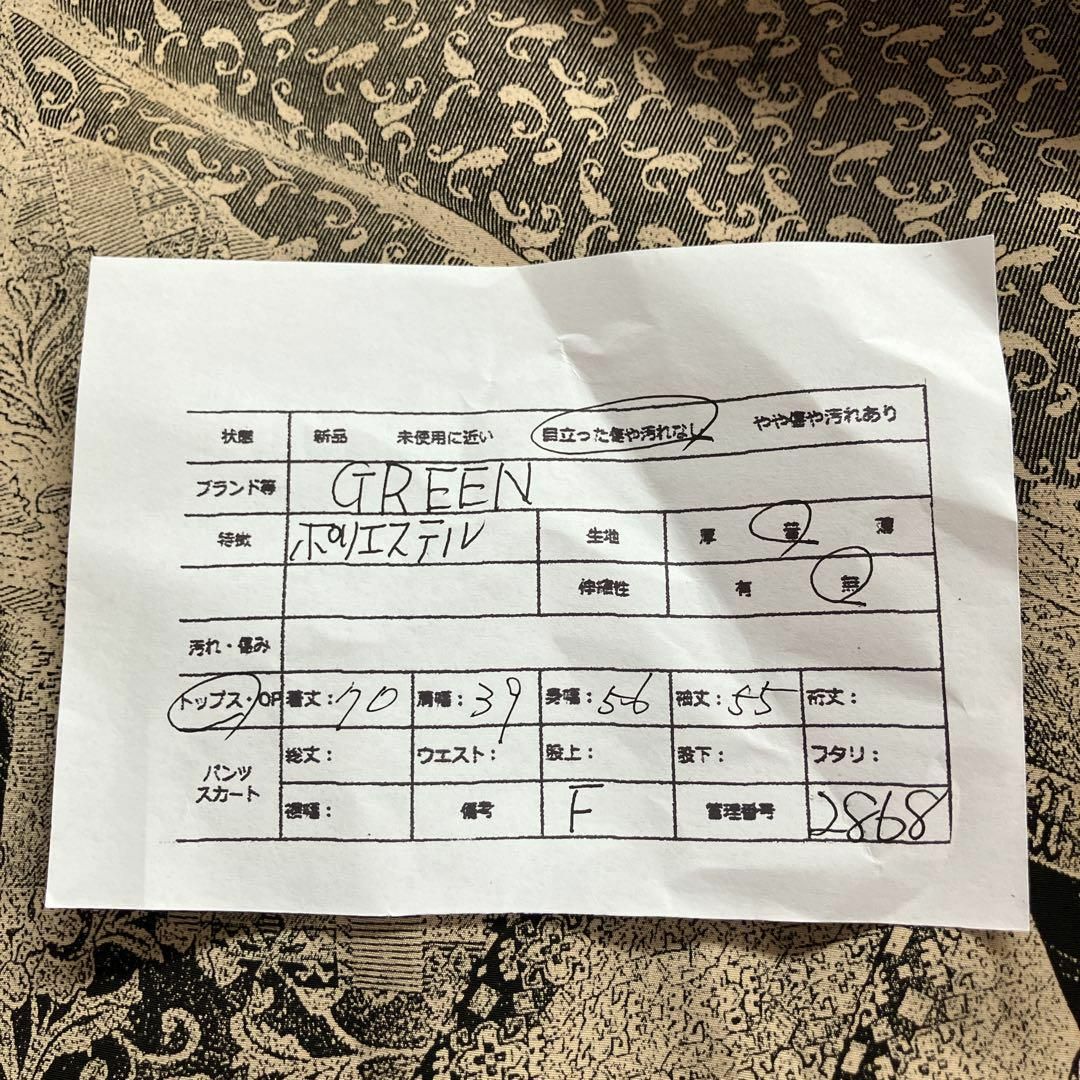 状態 新品 未使用に近い 目立った傷や汚れなし やや傷や汚れあり
ブランド等 GREEN
特徴 ポリエステル 生地 厚 普 薄
伸縮性 有 無
汚れ・傷み
トップス・OP 着丈：70 肩幅：39 身幅：56 袖丈：55 裄丈：
パンツ スカート 総丈： ウエスト： 股上： 股下： ワタリ：
裾幅： 備考 F 管理番号 2868